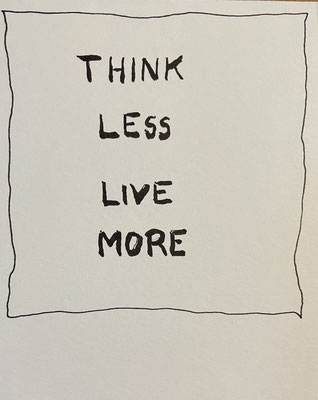 THINK
LESS
LIVE
MORE